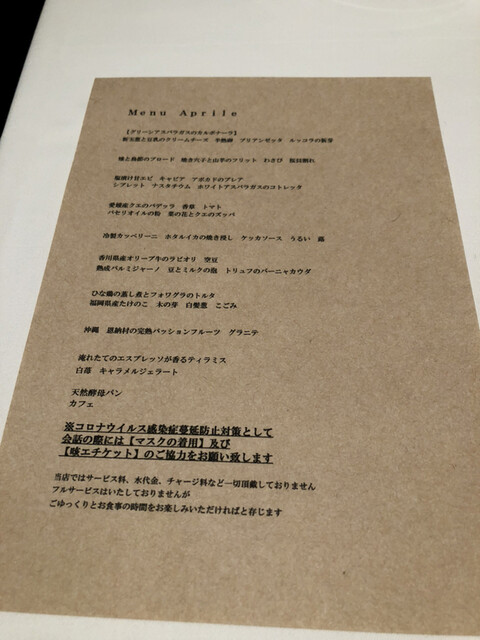 Menu Aprile
【グリーンアスパラガスのカルボナーラ】
新玉葱と豆乳のクリームチーズ 半熟卵 ブリアンゼッタ ルッコラの新芽
蛤と魚節のブロード 焼き穴子と山芋のフリット わさび 飯田割れ
塩漬け甘エビ キャビア アボカドのプレア
シブレット ナスタチウム ホワイトアスパラガスのコトレッタ
愛媛産クエのパデッラ 香草 トマト
パセリオイルの粉 菜の花とクエのズッパ
冷製カッペリーニ ホタルイカの焼き浸し ケッカソース うるい 蕗
香川県産オリーブ牛のラビオリ 空豆
熟成パルミジャーノ 豆とミルクの泡 トリュフのバーニャカウダ
ひな鶏の蒸し煮とフォワグラのトルタ
福岡県産たけのこ 木の芽 白髪葱 こごみ
沖縄 恩納村の完熟パッションフルーツ グラニテ
淹れたてのエスプレッソが香るティラミス
白苺 キャラメルジェラート
天然酵母パン
カフェ
※コロナウイルス感染症蔓延防止対策として
会話の際には【マスクの着用】及び
【咳エチケット】のご協力をお願い致します
当店ではサービス料、水代金、チャージ料など一切頂戴しておりません
フルサービスはいたしておりませんが
ごゆっくりとお食事の時間をお楽しみいただければと存じます